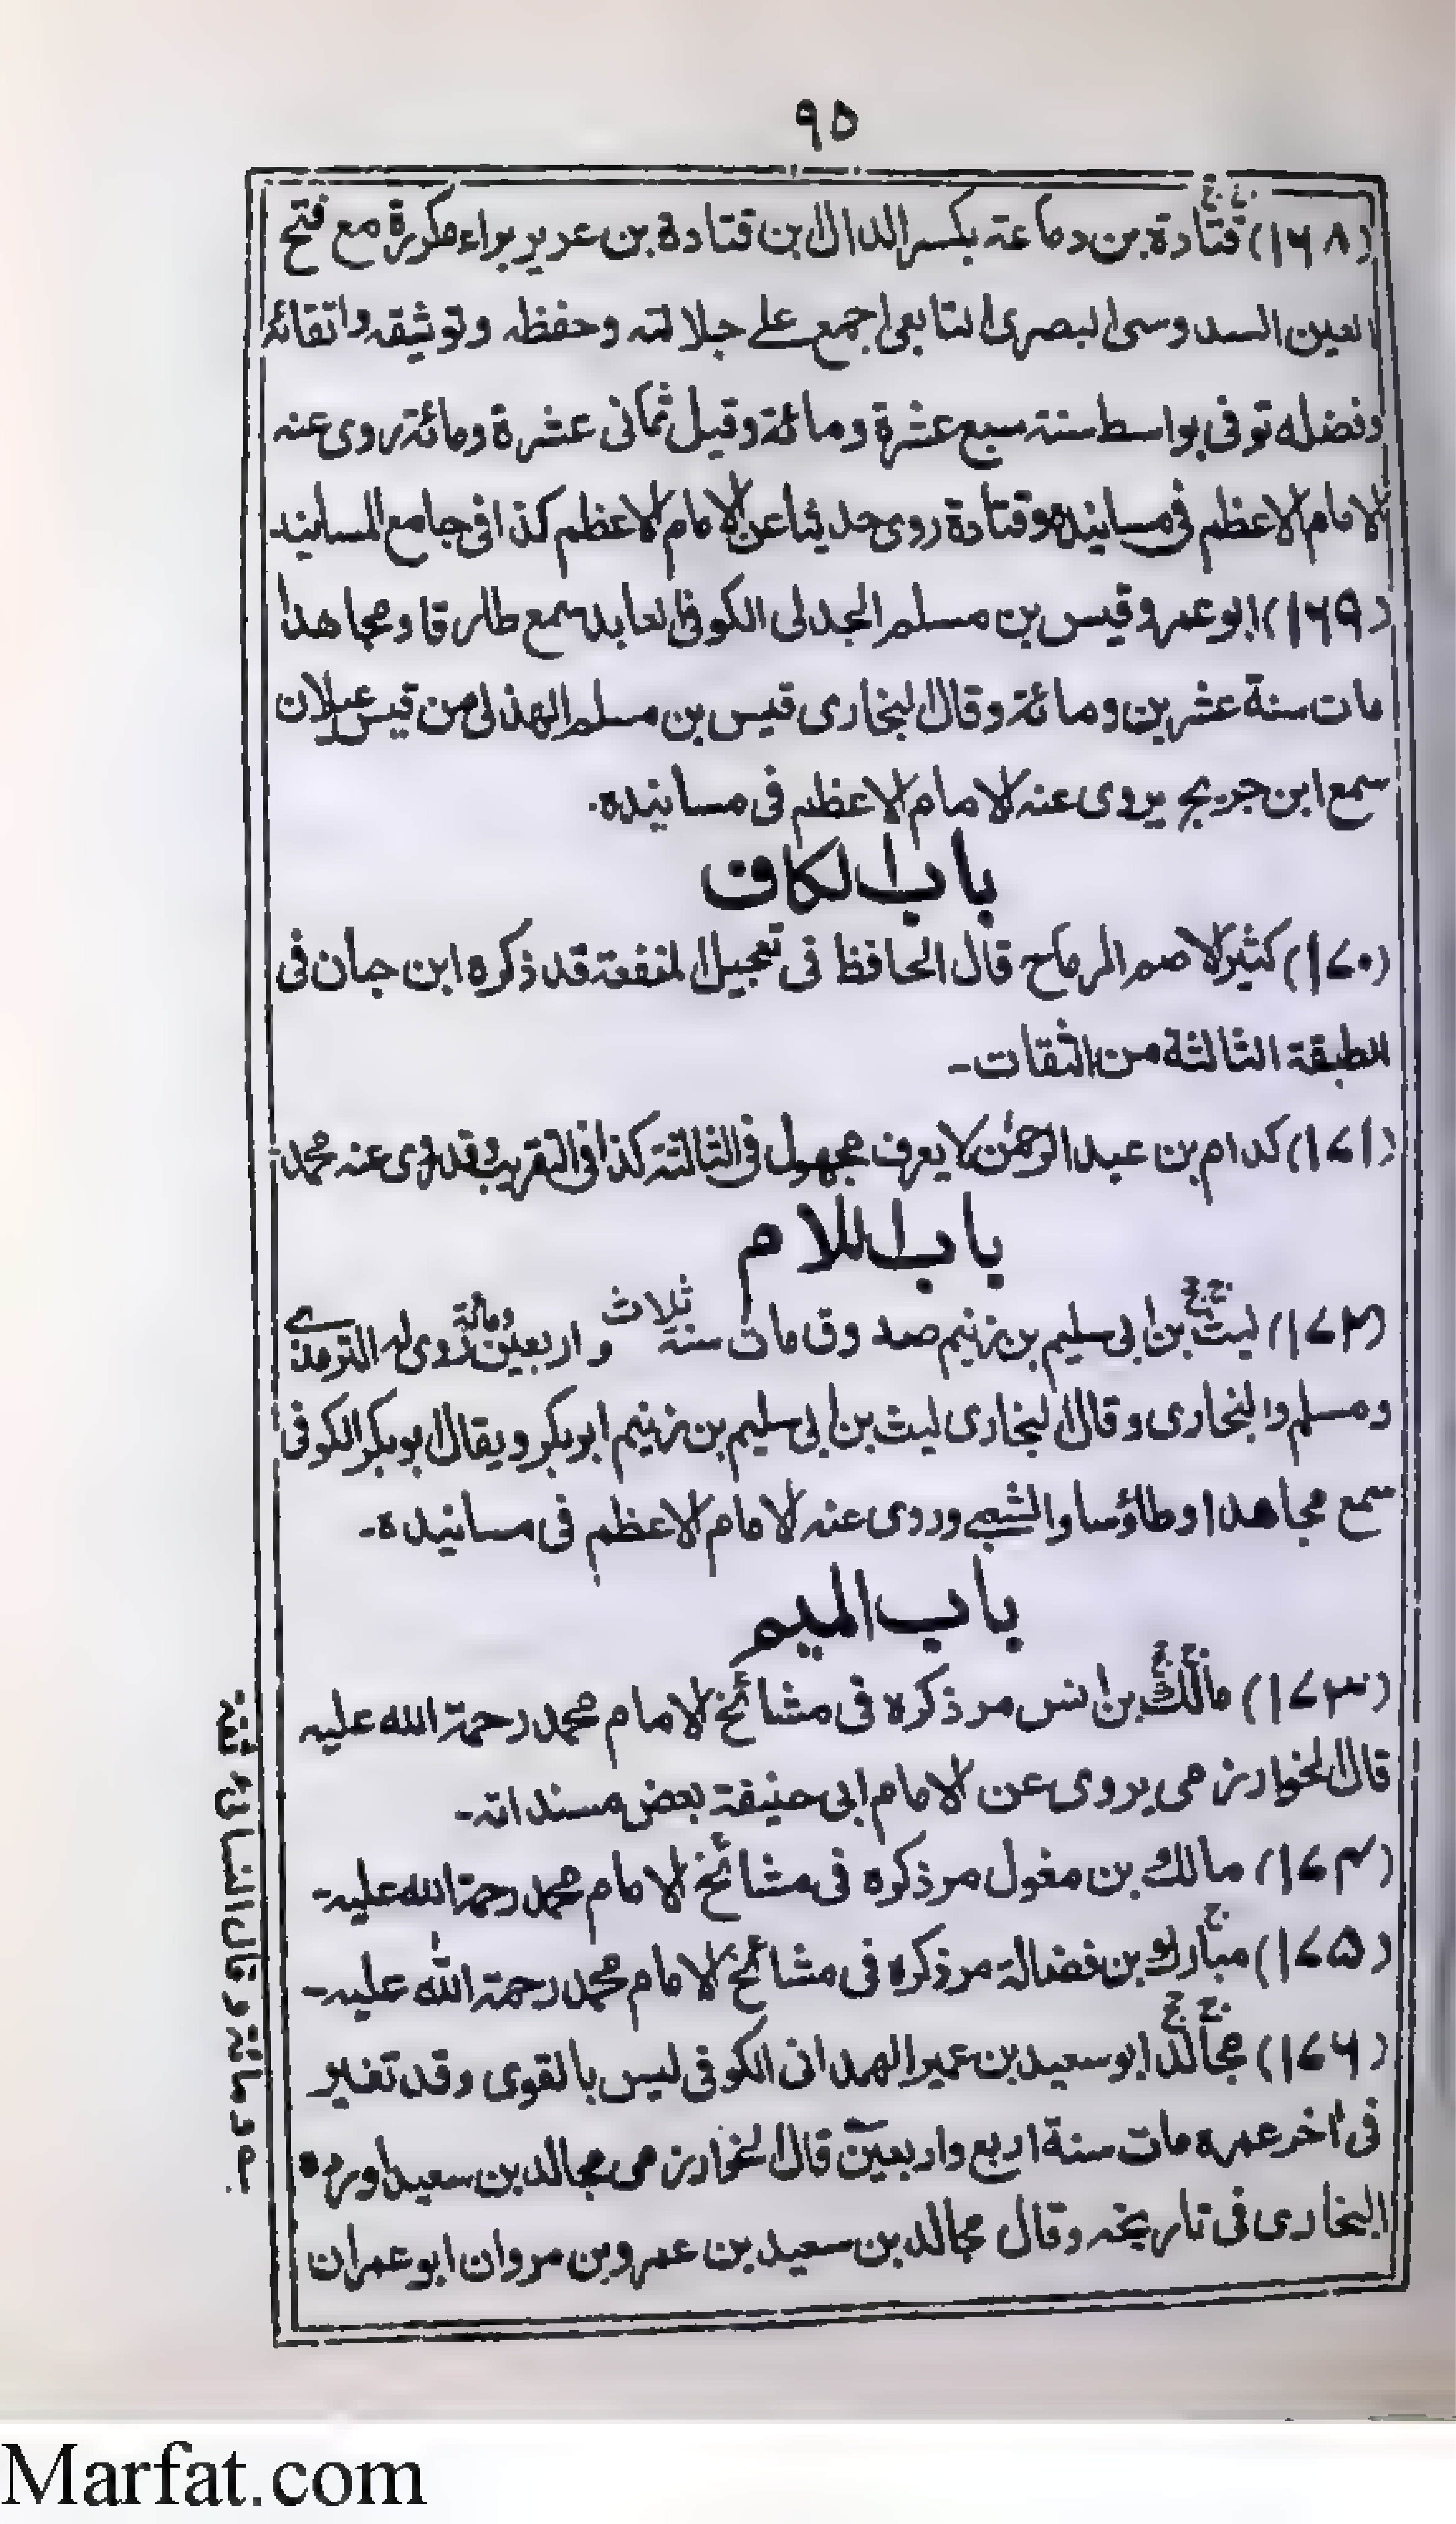 ٩٥
(١٦٨) قتادة بن دعامة بكسر الدال بن قتادة بن عرير براء مكررة مع فتح
العين السدوسى البصرى التابعى اجمع على جلالته وحفظه وتوثيقه واتقانه
وفضله توفى بواسط سنة سبع عشرة ومائة وقيل ثمانى عشرة ومائة روى عنه
الامام الاعظم فى مسانيده وقتادة روى حديثا عن الامام الاعظم كذا فى جامع المسانيد
(١٦٩) ابو عمرو قيس بن مسلم الجدلى الكوفى العابد سمع طارقا ومجاهدا
مات سنة عشرين ومائة وقال البخارى قيس بن مسلم الهذلى من قيس عيلان
سمع ابن جريج يروى عنه الامام الاعظم فى مسانيده.
باب الكاف
(١٧٠) كثير الاصم الرماح قال الحافظ فى تعجيل المنفعة قد ذكره ابن حبان فى
الطبقة الثالثة من الثقات-
(١٧١) كدام بن عبد الرحمٰن لا يعرف مجهول فى الثالثة كذا فى التقريب قد روى عنه محمد
باب اللام
(١٧٢) ليث بن ابى سليم بن زنيم صدوق مات سنة ثلاث و اربعين ومائة روى له الترمذى
ومسلم والبخارى وقال البخارى ليث بن ابى سليم بن زنيم ابو بكر ويقال ابو بكر الكوفى
سمع مجاهدا وطاؤسا والشعبى وروى عنه الامام الاعظم فى مسانيده-
باب الميم
(١٧٣) مالك بن انس مر ذكره فى مشائخ الامام محمد رحمة الله عليه
قال الخوارزمى يروى عن الامام ابى حنيفة بعض مسنداته-
(١٧٤) مالك بن مغول مر ذكره فى مشائخ الامام محمد رحمة الله عليه-
(١٧٥) مبارك بن فضالة مر ذكره فى مشائخ الامام محمد رحمة الله عليه-
(١٧٦) مجالد ابو سعيد بن عمير الهمدانى الكوفى ليس بالقوى وقد تغير
فى اخر عمره مات سنة اربع واربعين قال الخوارزمى مجالد بن سعيد اورده
البخارى فى تاريخه وقال مجالد بن سعيد بن عمرو بن مروان ابو عمران
ومائة وقال النسائى ثقة
Marfat.com